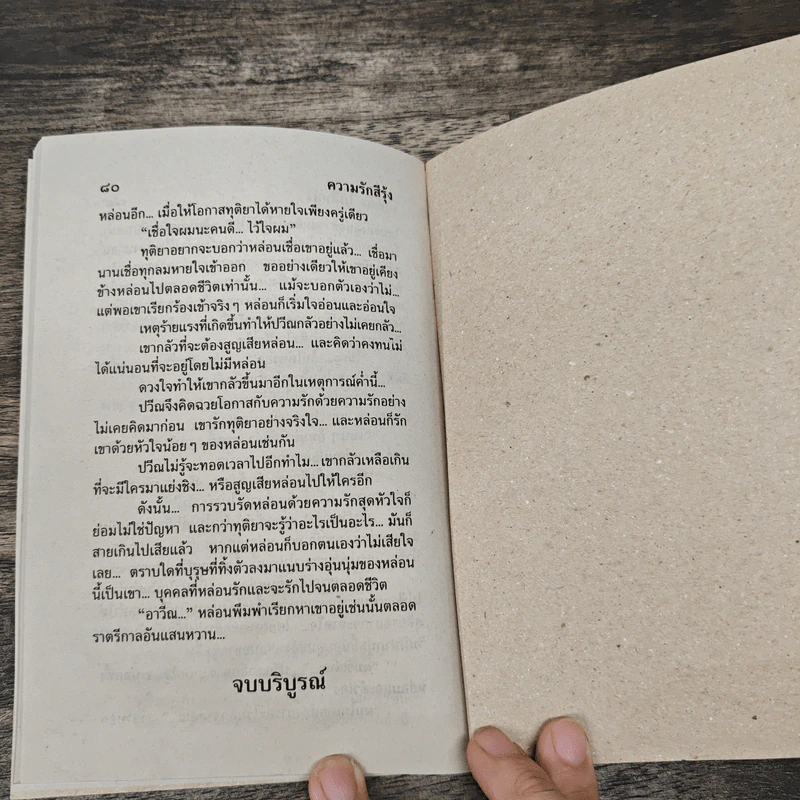 ๘๐ ความรักสีรุ้ง
หล่อนอีก... เมื่อให้โอกาสทุติยาได้หายใจเพียงครู่เดียว
“เชื่อใจผมนะคนดี... ไว้ใจผม”
ทุติยาอยากจะบอกว่าหล่อนเชื่อเขาอยู่แล้ว... เชื่อมา
นานเชื่อทุกลมหายใจเข้าออก ขออย่างเดียวให้เขาอยู่เคียง
ข้างหล่อนไปตลอดชีวิตเท่านั้น... แม้จะบอกตัวเองว่าไม่...
แต่พอเขาเรียกร้องเข้าจริง ๆ หล่อนก็เริ่มใจอ่อนและอ่อนใจ
เหตุร้ายแรงที่เกิดขึ้นทำให้ปวีณกลัวอย่างไม่เคยกลัว...
เขากลัวที่จะต้องสูญเสียหล่อน... และคิดว่าคงทนไม่
ได้แน่นอนที่จะอยู่โดยไม่มีหล่อน
ดวงใจทำให้เขากลัวขึ้นมาอีกในเหตุการณ์ค่ำนี้...
ปวีณจึงคิดฉวยโอกาสกับความรักด้วยความรักอย่าง
ไม่เคยคิดมาก่อน เขารักทุติยาอย่างจริงใจ... และหล่อนก็รัก
เขาด้วยหัวใจน้อย ๆ ของหล่อนเช่นกัน
ปวีณไม่รู้จะทอดเวลาไปอีกทำไม... เขากลัวเหลือเกิน
ที่จะมีใครมาแย่งชิง... หรือสูญเสียหล่อนไปให้ใครอีก
ดังนั้น... การรวบรัดหล่อนด้วยความรักสุดหัวใจก็
ย่อมไม่ใช่ปัญหา และกว่าทุติยาจะรู้ว่าอะไรเป็นอะไร... มันก็
สายเกินไปเสียแล้ว หากแต่หล่อนก็บอกตนเองว่าไม่เสียใจ
เลย... ตราบใดที่บุรุษที่ทิ้งตัวลงมาแนบร่างอุ่นนุ่มของหล่อน
นี้เป็นเขา... บุคคลที่หล่อนรักและจะรักไปจนตลอดชีวิต
“อาวีณ...” หล่อนพึมพำเรียกหาเขาอยู่เช่นนั้นตลอด
ราตรีกาลอันแสนหวาน...
จบบริบูรณ์